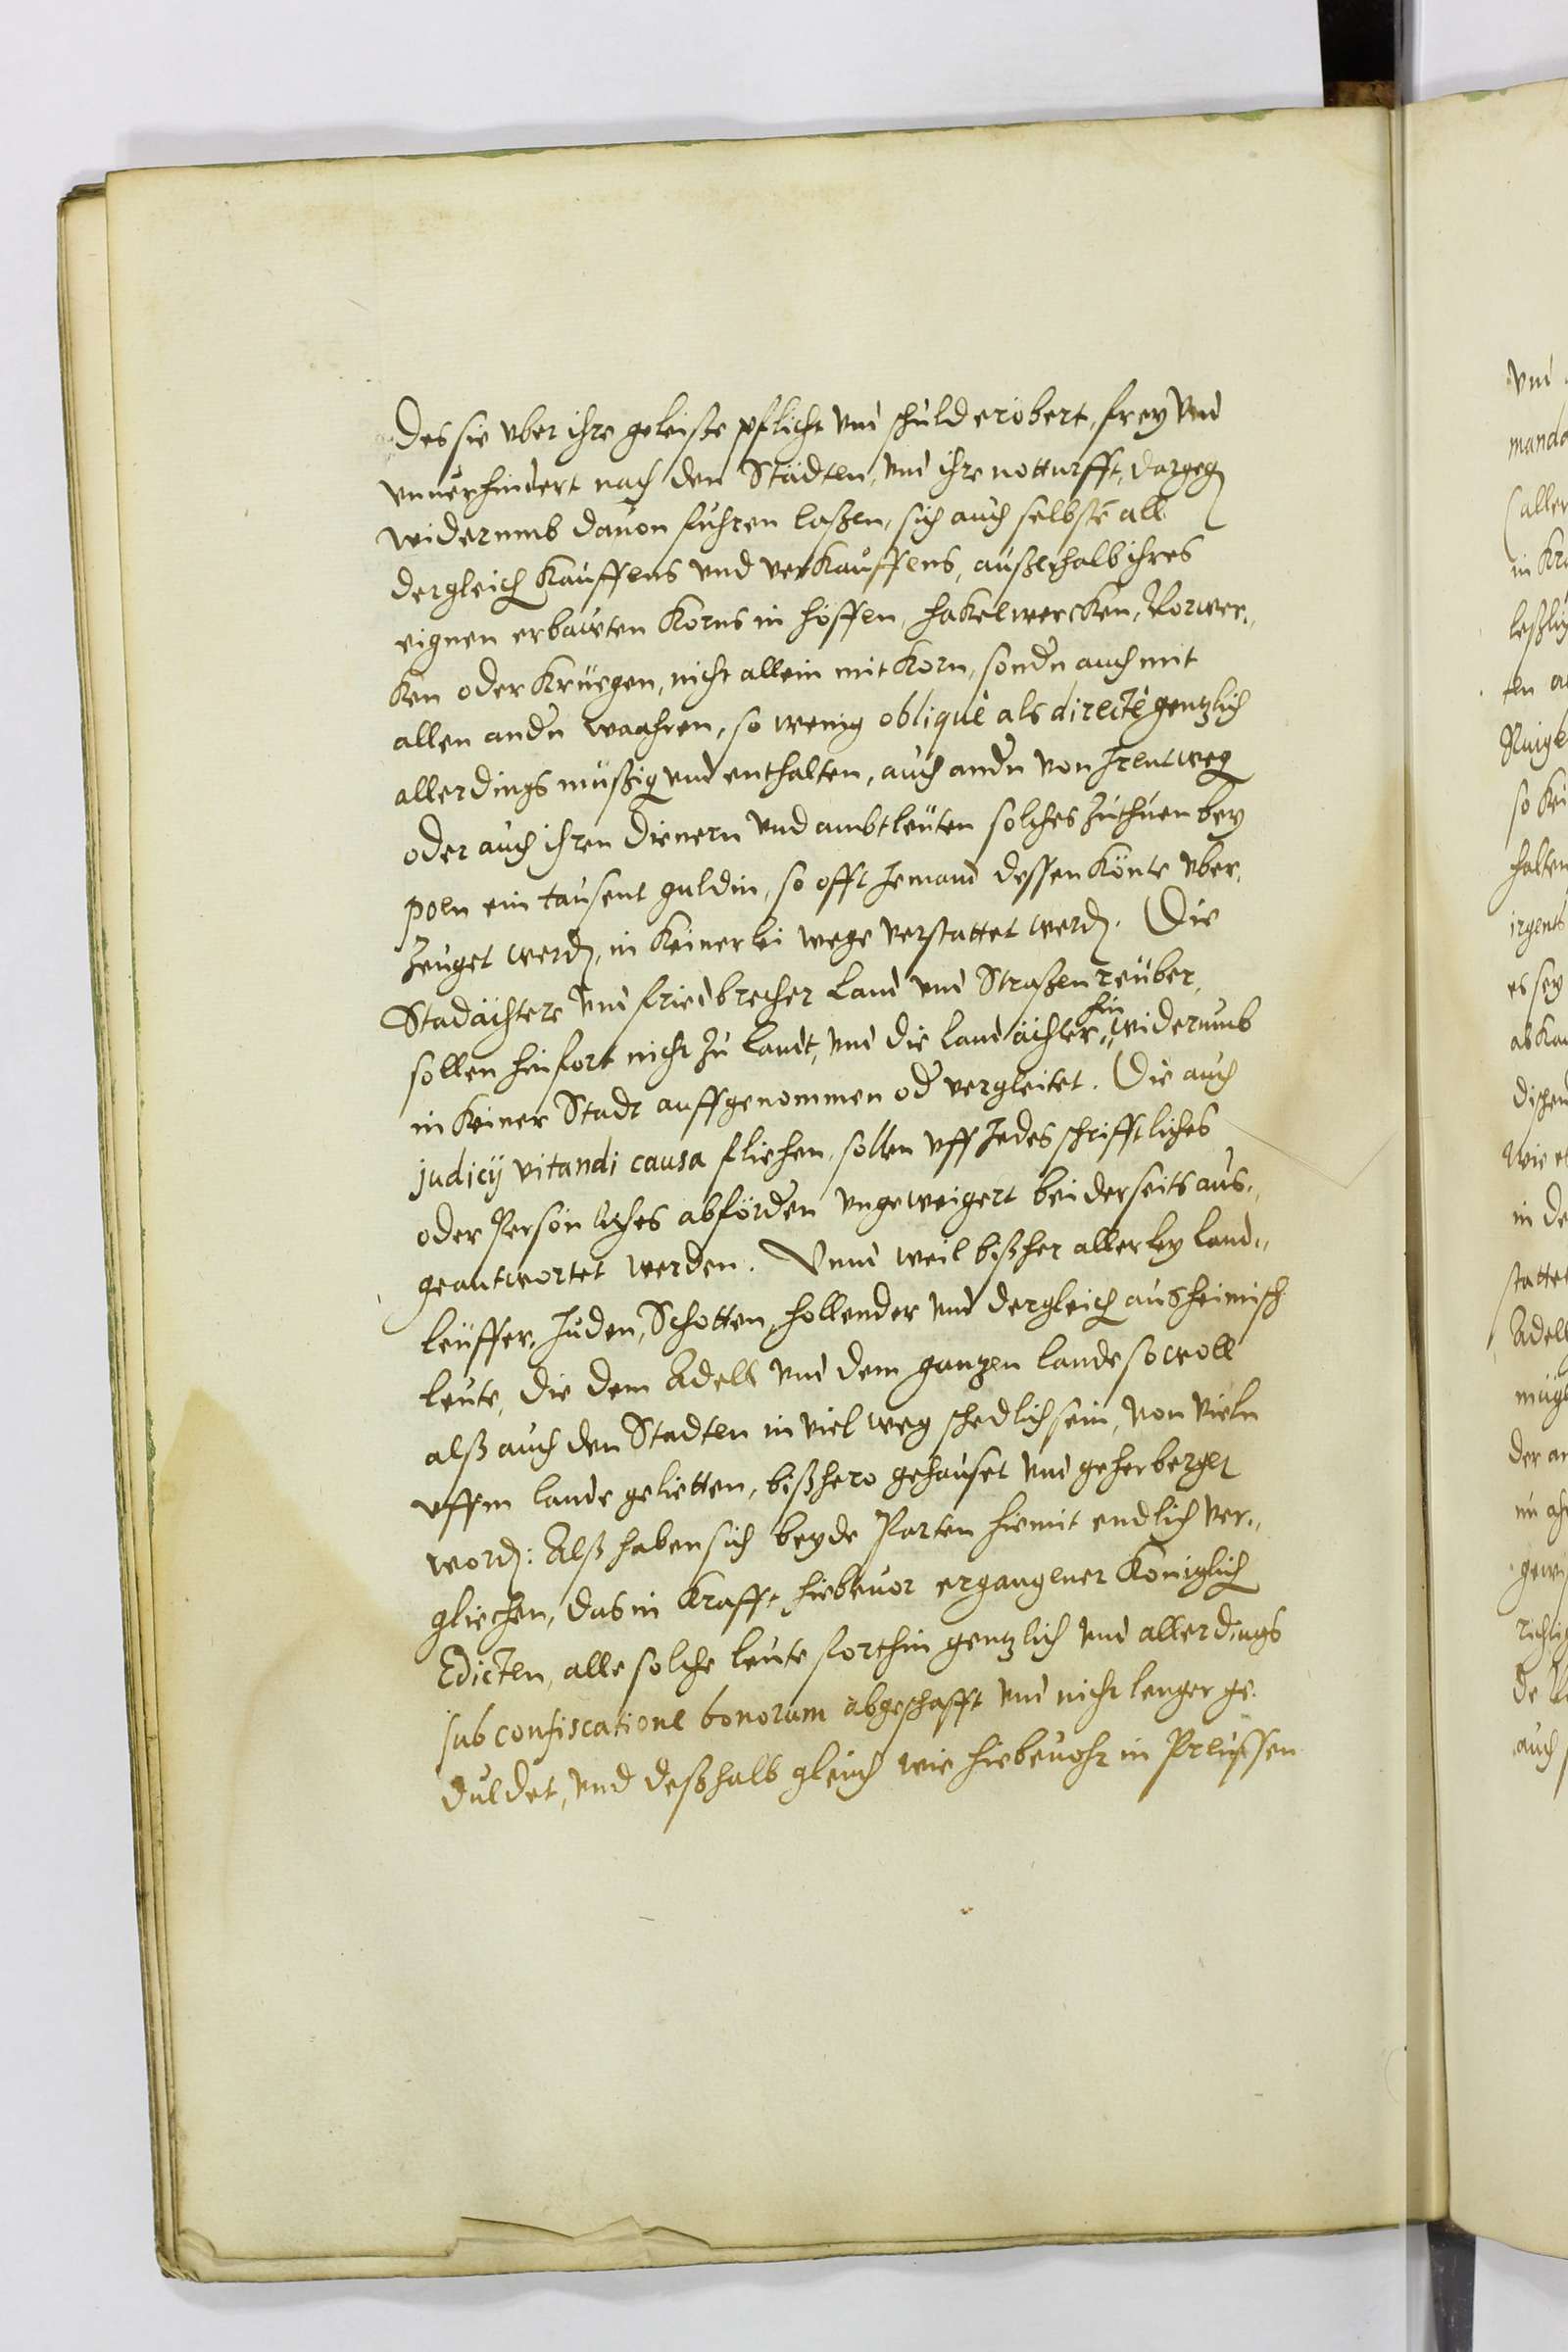 des sie vber ihre geleiste pflicht vnd schuld erobert, frey vnd
vnuerhindert nach den Städten, vnd ihre notturfft, dargegen
widerumb dauon fuhren laßen, sich auch selbste all
dergleich Kauffens vnd verKauffens, außerhalb ihres
eignen erbawten Korns in höffen, hakelwercken, Vorwer„
ken oder Krüegen, nicht allein mit Korn, sondn auch mit
allen andn waahren, so wenig obliquè als directè gentzlich
allerdings müßig vnd enthalten, auch andn von Irentweg
oder auch ihren dienern vnd ambtleuten solches zuthuen bey
poen ein tausent guldin, so offt Jemand dessen Könte vber„
zeuget werden, in Keinerlei wege verstattet werden. Die
Stadächtere vnd friedbrecher Land vnd Straßenreüber,
sollen hinfort nicht zu landt, vnd die land ächter hin„widerumb
in Keiner Stadt auffgenommen od vergleitet. Die auch
judicij vitandi causa fliehen, sollen vff Jedes schrifftliches
oder Persönliches abfördern vngeweigert beiderseits aus„
geantwortet werden. Vnnd weil bißher allerley land„
leüffer, Juden, Schotten, hollender vnd dergleich ausheimisch
leute, die dem Adell vnd dem gantzen lande sowoll
alß auch den Stadten in viel weg schedlich sein, von vieln
vffm lande gelietten, bißhero gehauset vnd geherberget
worden: Alß haben sich beyde Parten hiemit endlich ver„
gliechen, das in Krafft hiebeuor ergangener Königlich
Edicten, alle solche leute forthin gentzlich vnd allerdings
sub confiscatione bonorum abgeschafft vnd nicht lenger ge„
duldet, vnd deßhalb gleich wie hiebeuohr in Preussen